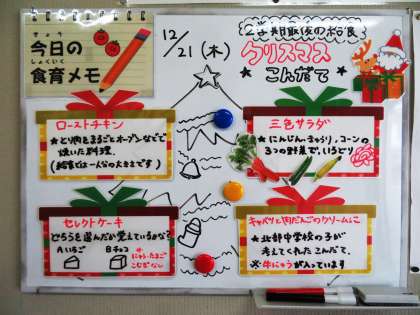 きょう
今日の
しょくいく
食育メモ
12/21(木)
2学期最後の給食
クリスマス
★こんだて★
ローストチキン
★とり肉をまるごとオーブンなどで
焼いた料理。
(給食では一人分の大きさです)
三色サラダ
★にんじん、きゅうり、コーンの
3つの野菜で、いろどり
セレクトケーキ
どちらを選んだか覚えているかな?
Aいちご
Bチョコ
にゅう・たまご
こむぎなし
キャベツと肉だんごのクリームに
★北部中学校の子が
考えてくれたこんだて。
牛にゅうが入っています